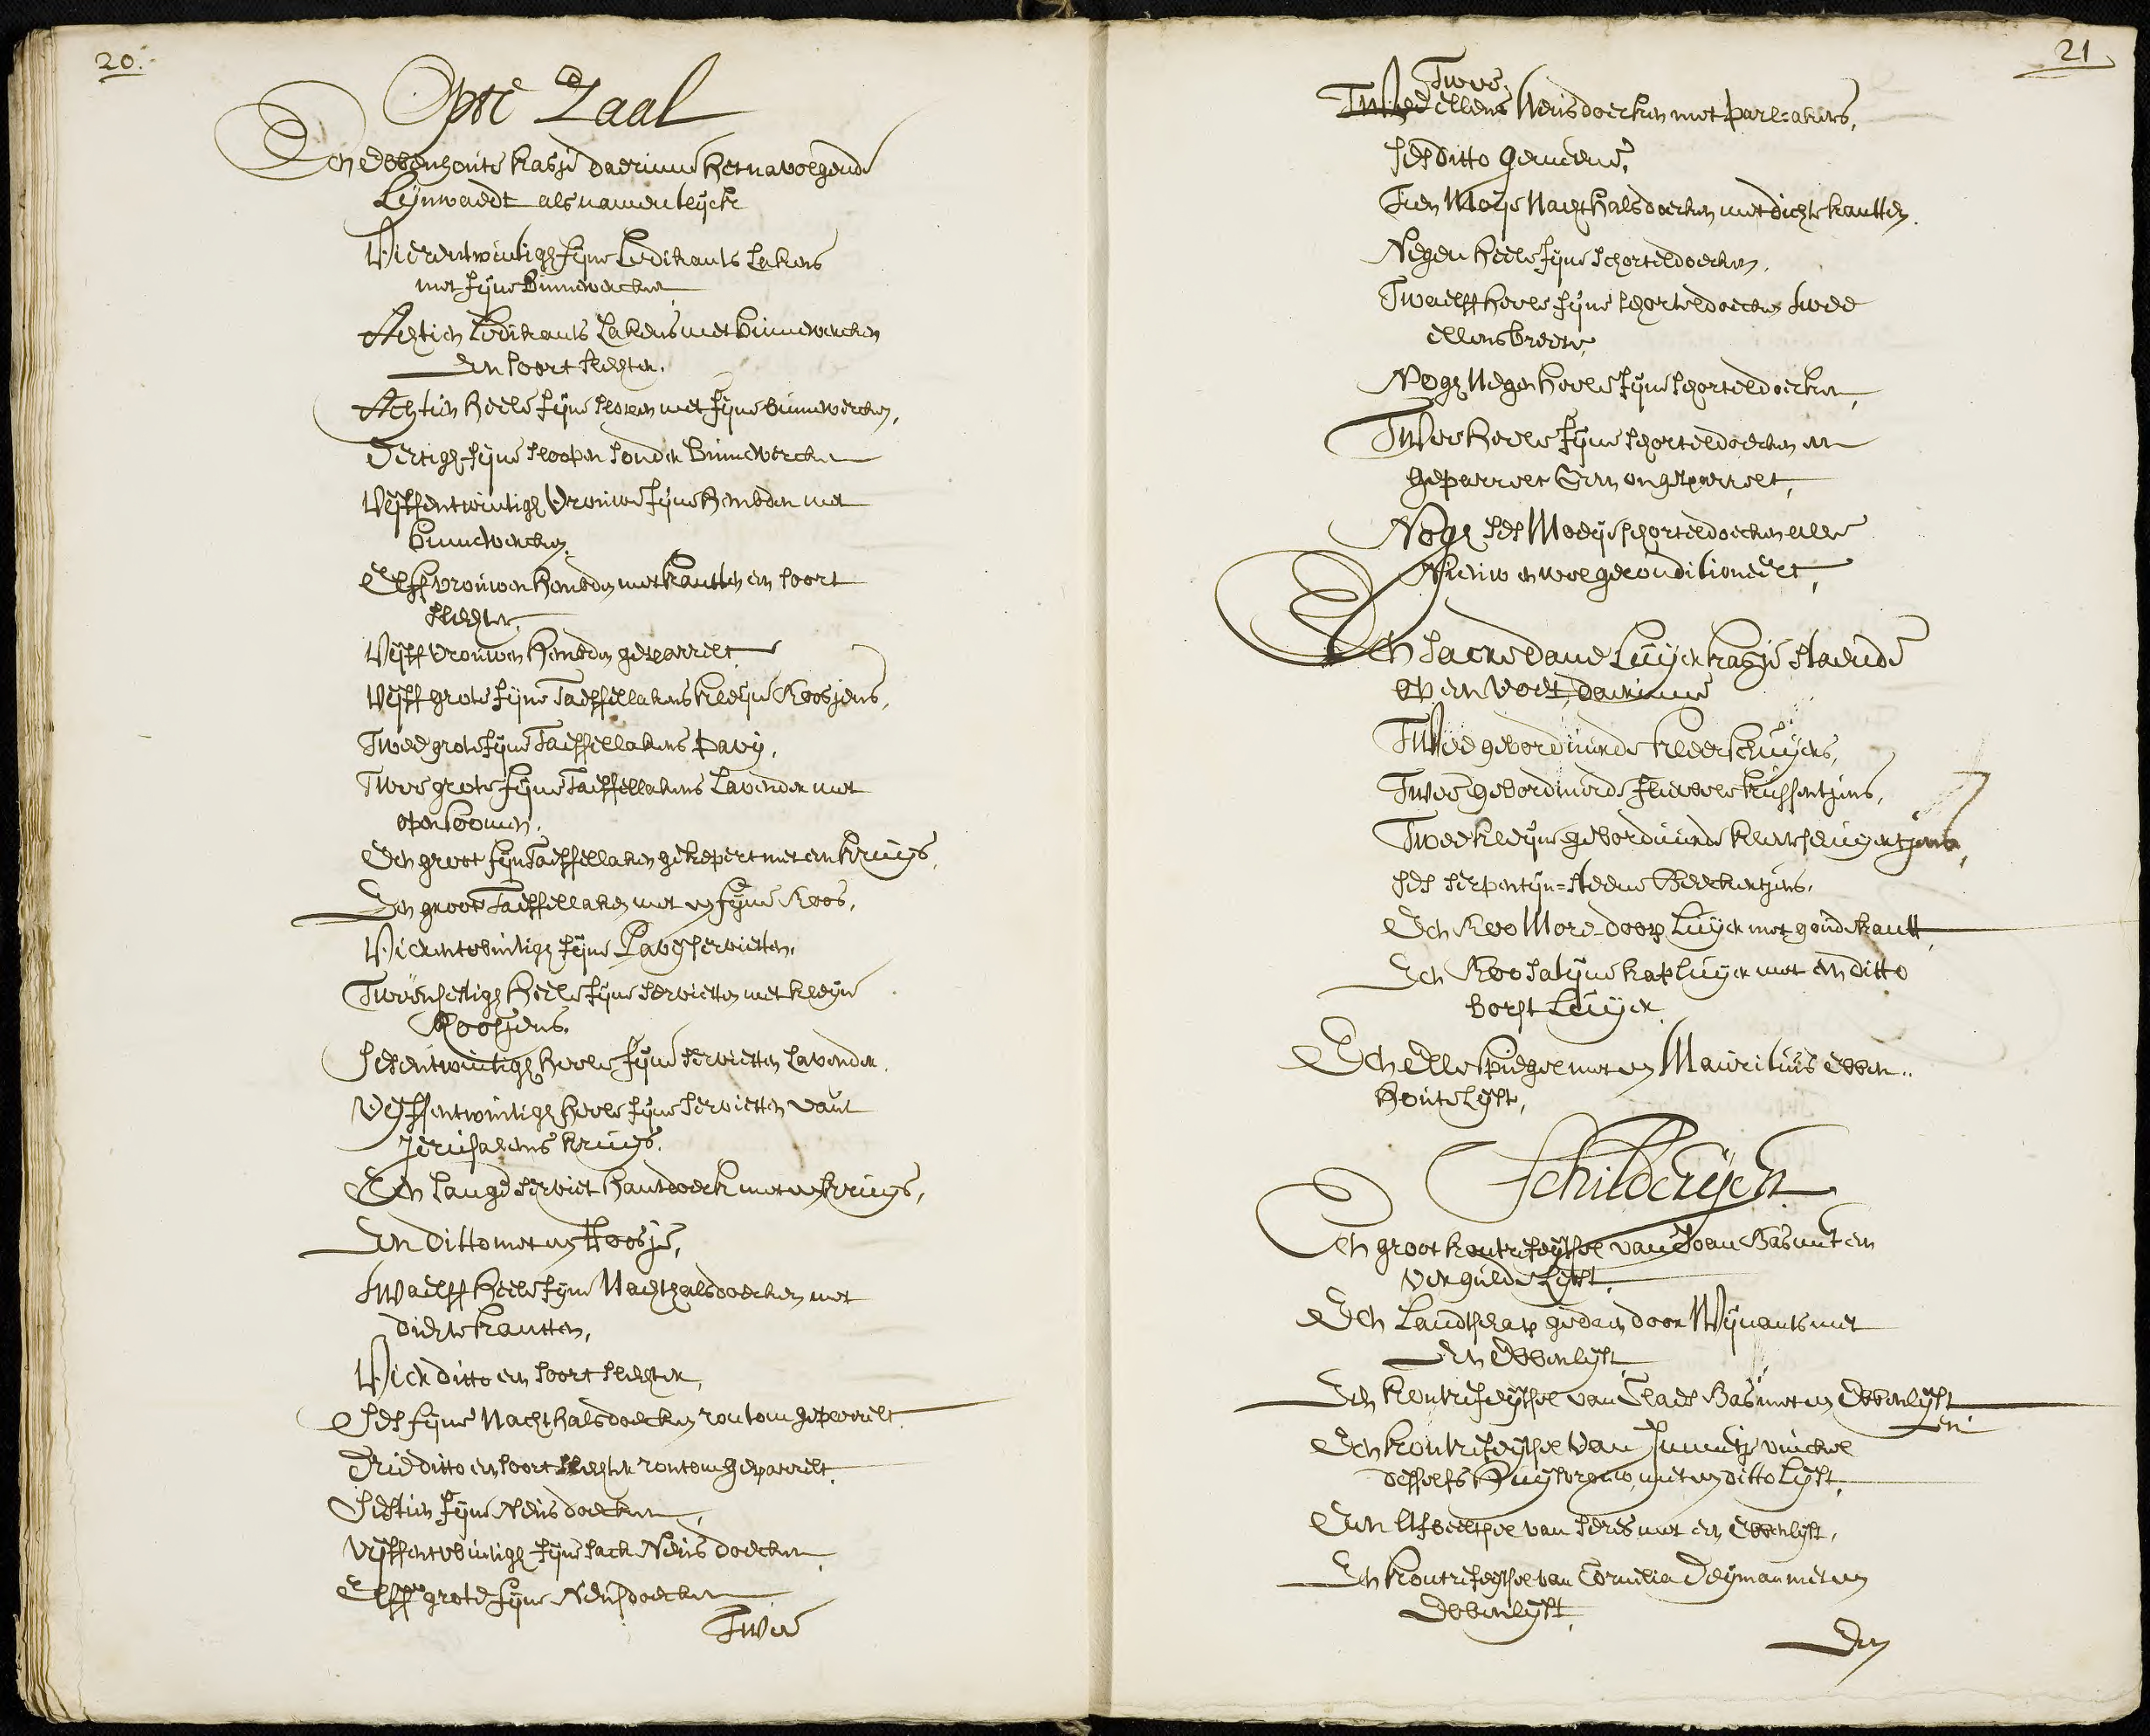 20.
Opde Zaal
Een ebbenhoute kasje daerinne het navolgende
Lijnwaedt als namentlijck
Vierentwintigh fijne Ledikants Lakens
met fijne binnewercken
Achtien Ledikants Lakens met binnewercken
een soort slechter.
Achtien heele fijne sloopen met fijne binnewercken,
Dertigh fijne sloopen sonder binnewercken
Vijffentwintigh Vrouwe fijne hembden met
binnewercken,
Elff vrouwen hembden met kantten een soort
slechter,
Vijff vrouwen hembden geparrelt
Vijff grote fijne Taeffellakens kleijne Roosjens,
Twee grote fijne Taeffellakens pavij,
Twee grote fijne Taeffellakens Lavender met
open boomen,
Een groot fijn Taeffellaken gekepert met een kruijs,
Een groot Taeffellaken met een fijne Roos,
Vierentwintigh fijne Pavij servietten,
Tweensestigh heele fijne servietten met kleijne
Roosjens.
Sesentwintigh heele fijne servietten Lavender.
Vijffentwintigh heele fijne servietten vant
Jerusalems kruijs.
Een lange serviet hantdoeck met een kruijs,
Een ditto met een Roosje,
Twaelff heele fijne Nachthalsdoecken met
dichte kantten,
Vier ditto een soort slechter,
Ses fijne Nachthalsdoecken rontom geparrelt
Drie ditto een soort slechter rontom geparrelt.
Sestien fijne Neusdoecken,
Vijffentwintigh fijne sack Neusdoecken
Elff grote fijne Neusdoecken
Twee
21
Twee
ellens Neusdoecken met parl=akers,
ses ditto gemeene,
Tien Moije Nachthalsdoecken met dichte kantten,
Negen heele fijne schorteldoecken,
Twaelff heele fijne schorteldoecken twee
ellens breete,
Nogh Negen heele fijne schorteldoecken,
Twee heele fijne schorteldoecken een
geparrelt Een ongeparrelt,
Nogh ses Moeije schorteldoecken alle
Nieuw en wel geconditioneert,
Een sacredane Luijer kasje staende
op een voet, daerinne
Twee gebordiuurde kleersluijers,
Twee gebordiuurde fluweele kussentjens,
Twee kleijne gebordiuurde
ses serpentijn=steene Beeckertjens,
Een Roo More-doop Luijer met goude kantt,
Een Roo Satijne kap luijer met een ditto
borst Luijer
Een Elle spiegel met een Mauritius ebben=
houte Lijst,
Schilderijen
Een groot kontrefeijtsel van Joan Bas met een
vergulde Lijst.
Een Landtschap gedaen door Wijnants met
een Ebbenlijst
Een kontrefeijtsel van Claes Bas met een Ebbenlijst
en
Een kontrefeijtsel van vinckel
desselfs Huijsvrouw, met een ditto Lijst,
Een Afbeeltsel van Seres met een Ebbenlijst,
Een kontrefeijtsel van Cornelia Deijman met een
Ebbenlijst,
Een